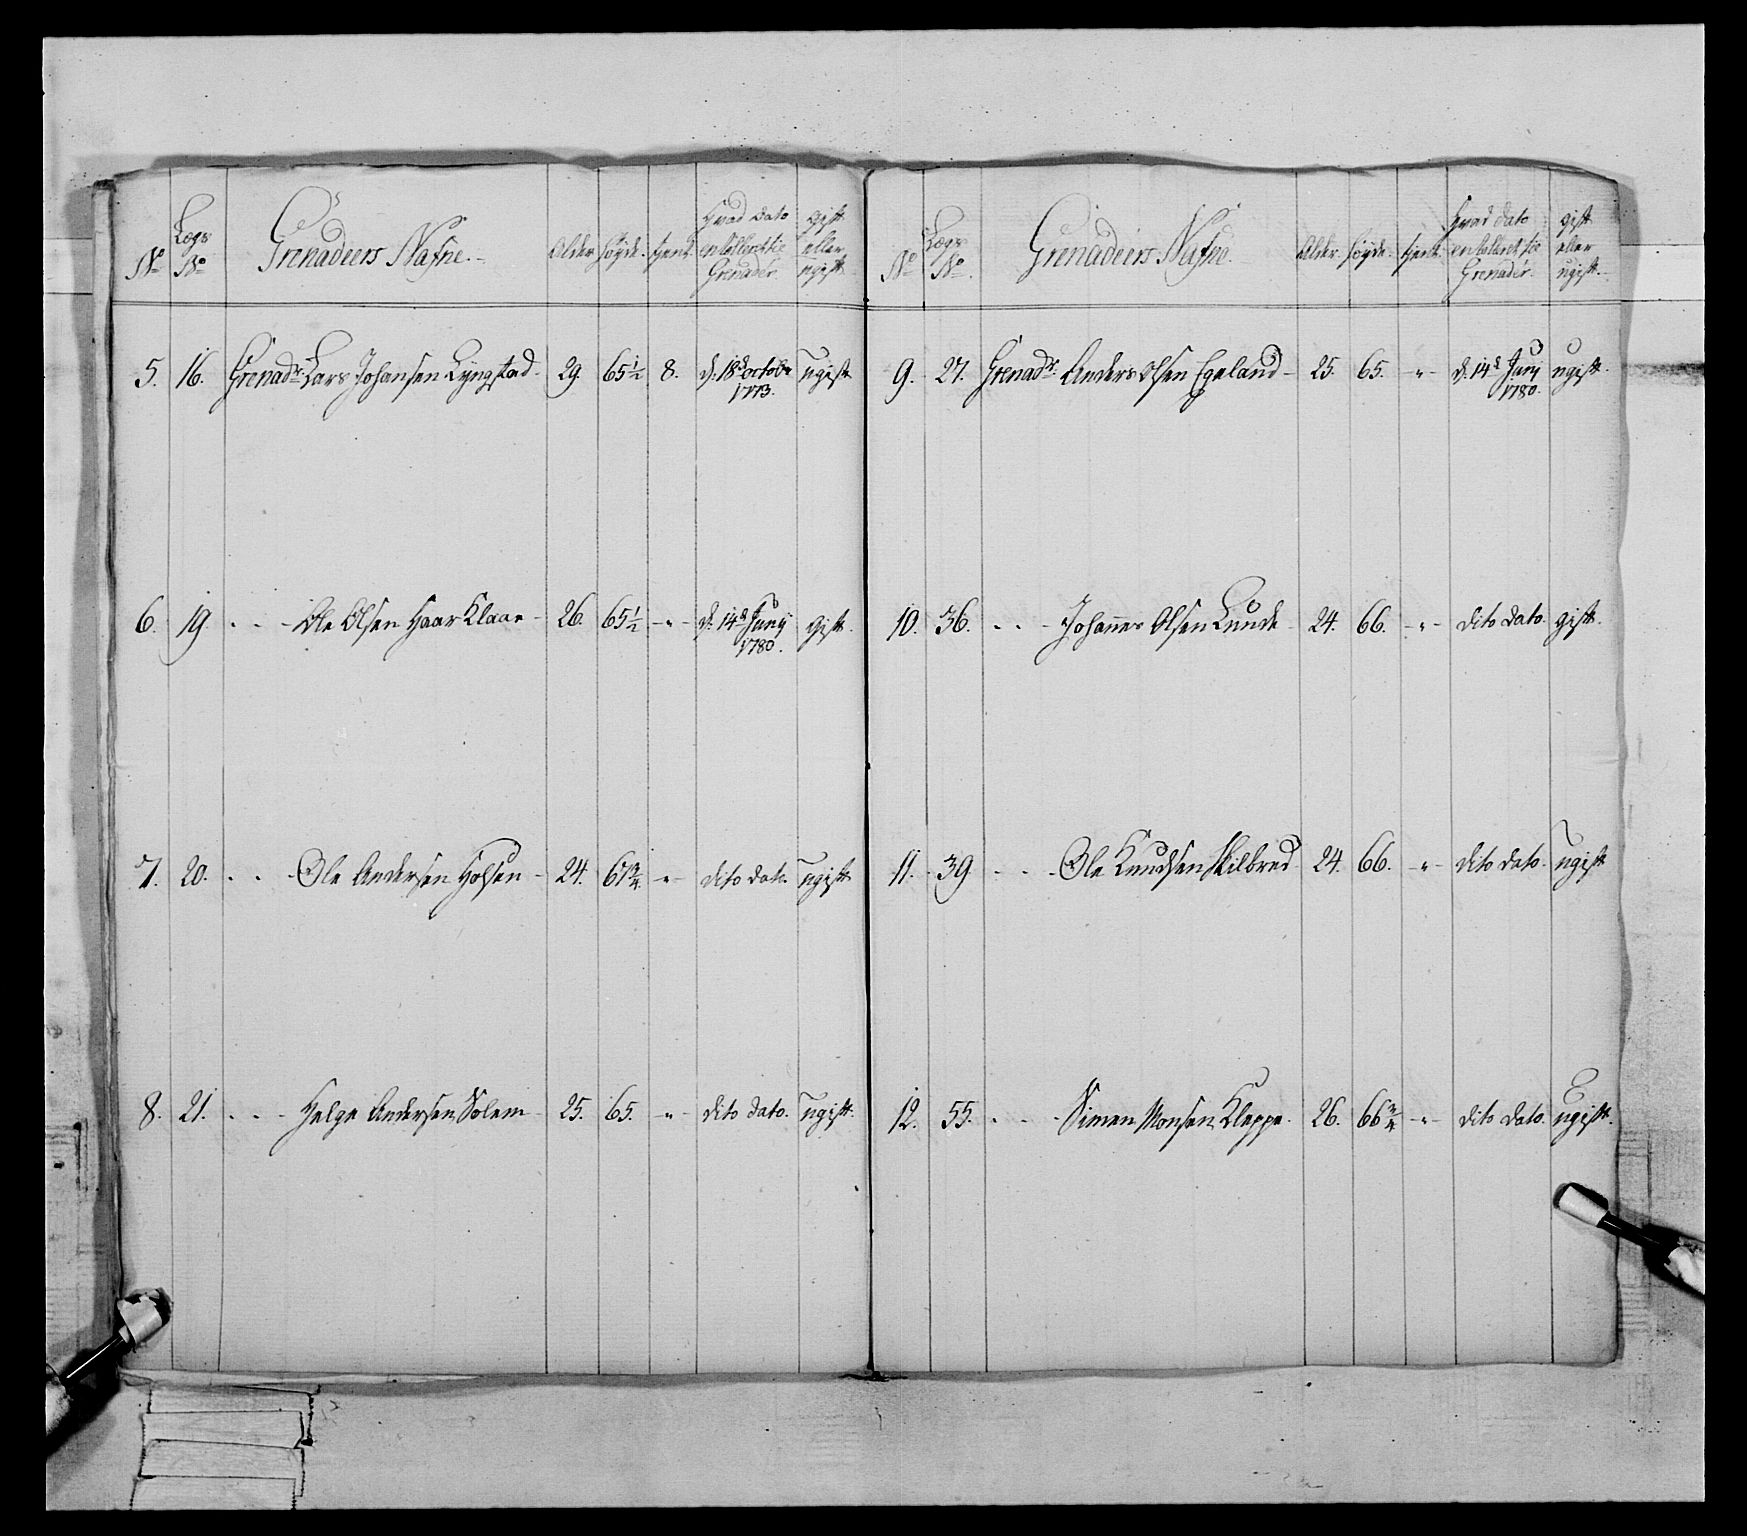 No
Lægs No
Grenadeers Nafne.
Alder
Høyde.
tjent.
Hvad dato enrolleret til Grenader.
gift eller ugift
5. 16. Grenadr. Lars Johansen Lyngstad 29. 65½ 8. d. 18d octobr 1773. ugift
6. 19 . . - Ole Olsen Haar Klaae - 26. 65½ -"- d. 14d Juny 1780. gift.
7. 20. . . - Ole Andersen Holsen - 24. 67¾ -"- dito dato. ugift
8. 21. . . - Helge Andersen Solem - 25. 65. -"- dito dato. ugift.
No
Lægs No.
Grenadeers Nafne.
Alder.
Høyde.
tjent.
Hvad dato enrolleret til Grenader.
gift eller ugift.
9. 27. Grenadr. Anders Olsen Egeland - 25. 65. -"- d. 14d Juny 1780. ugift.
10. 36. . . - Johannes Olsen Lunde - 24. 66. -"- dito dato. gift.
11. 39 . . - Ole Knudsen Skilbred 24. 66. -"- dito dato. ugift
12. 55. . . - Simen Monsen Kleppe. 26. 66¾ -"- dito dato. ugift.